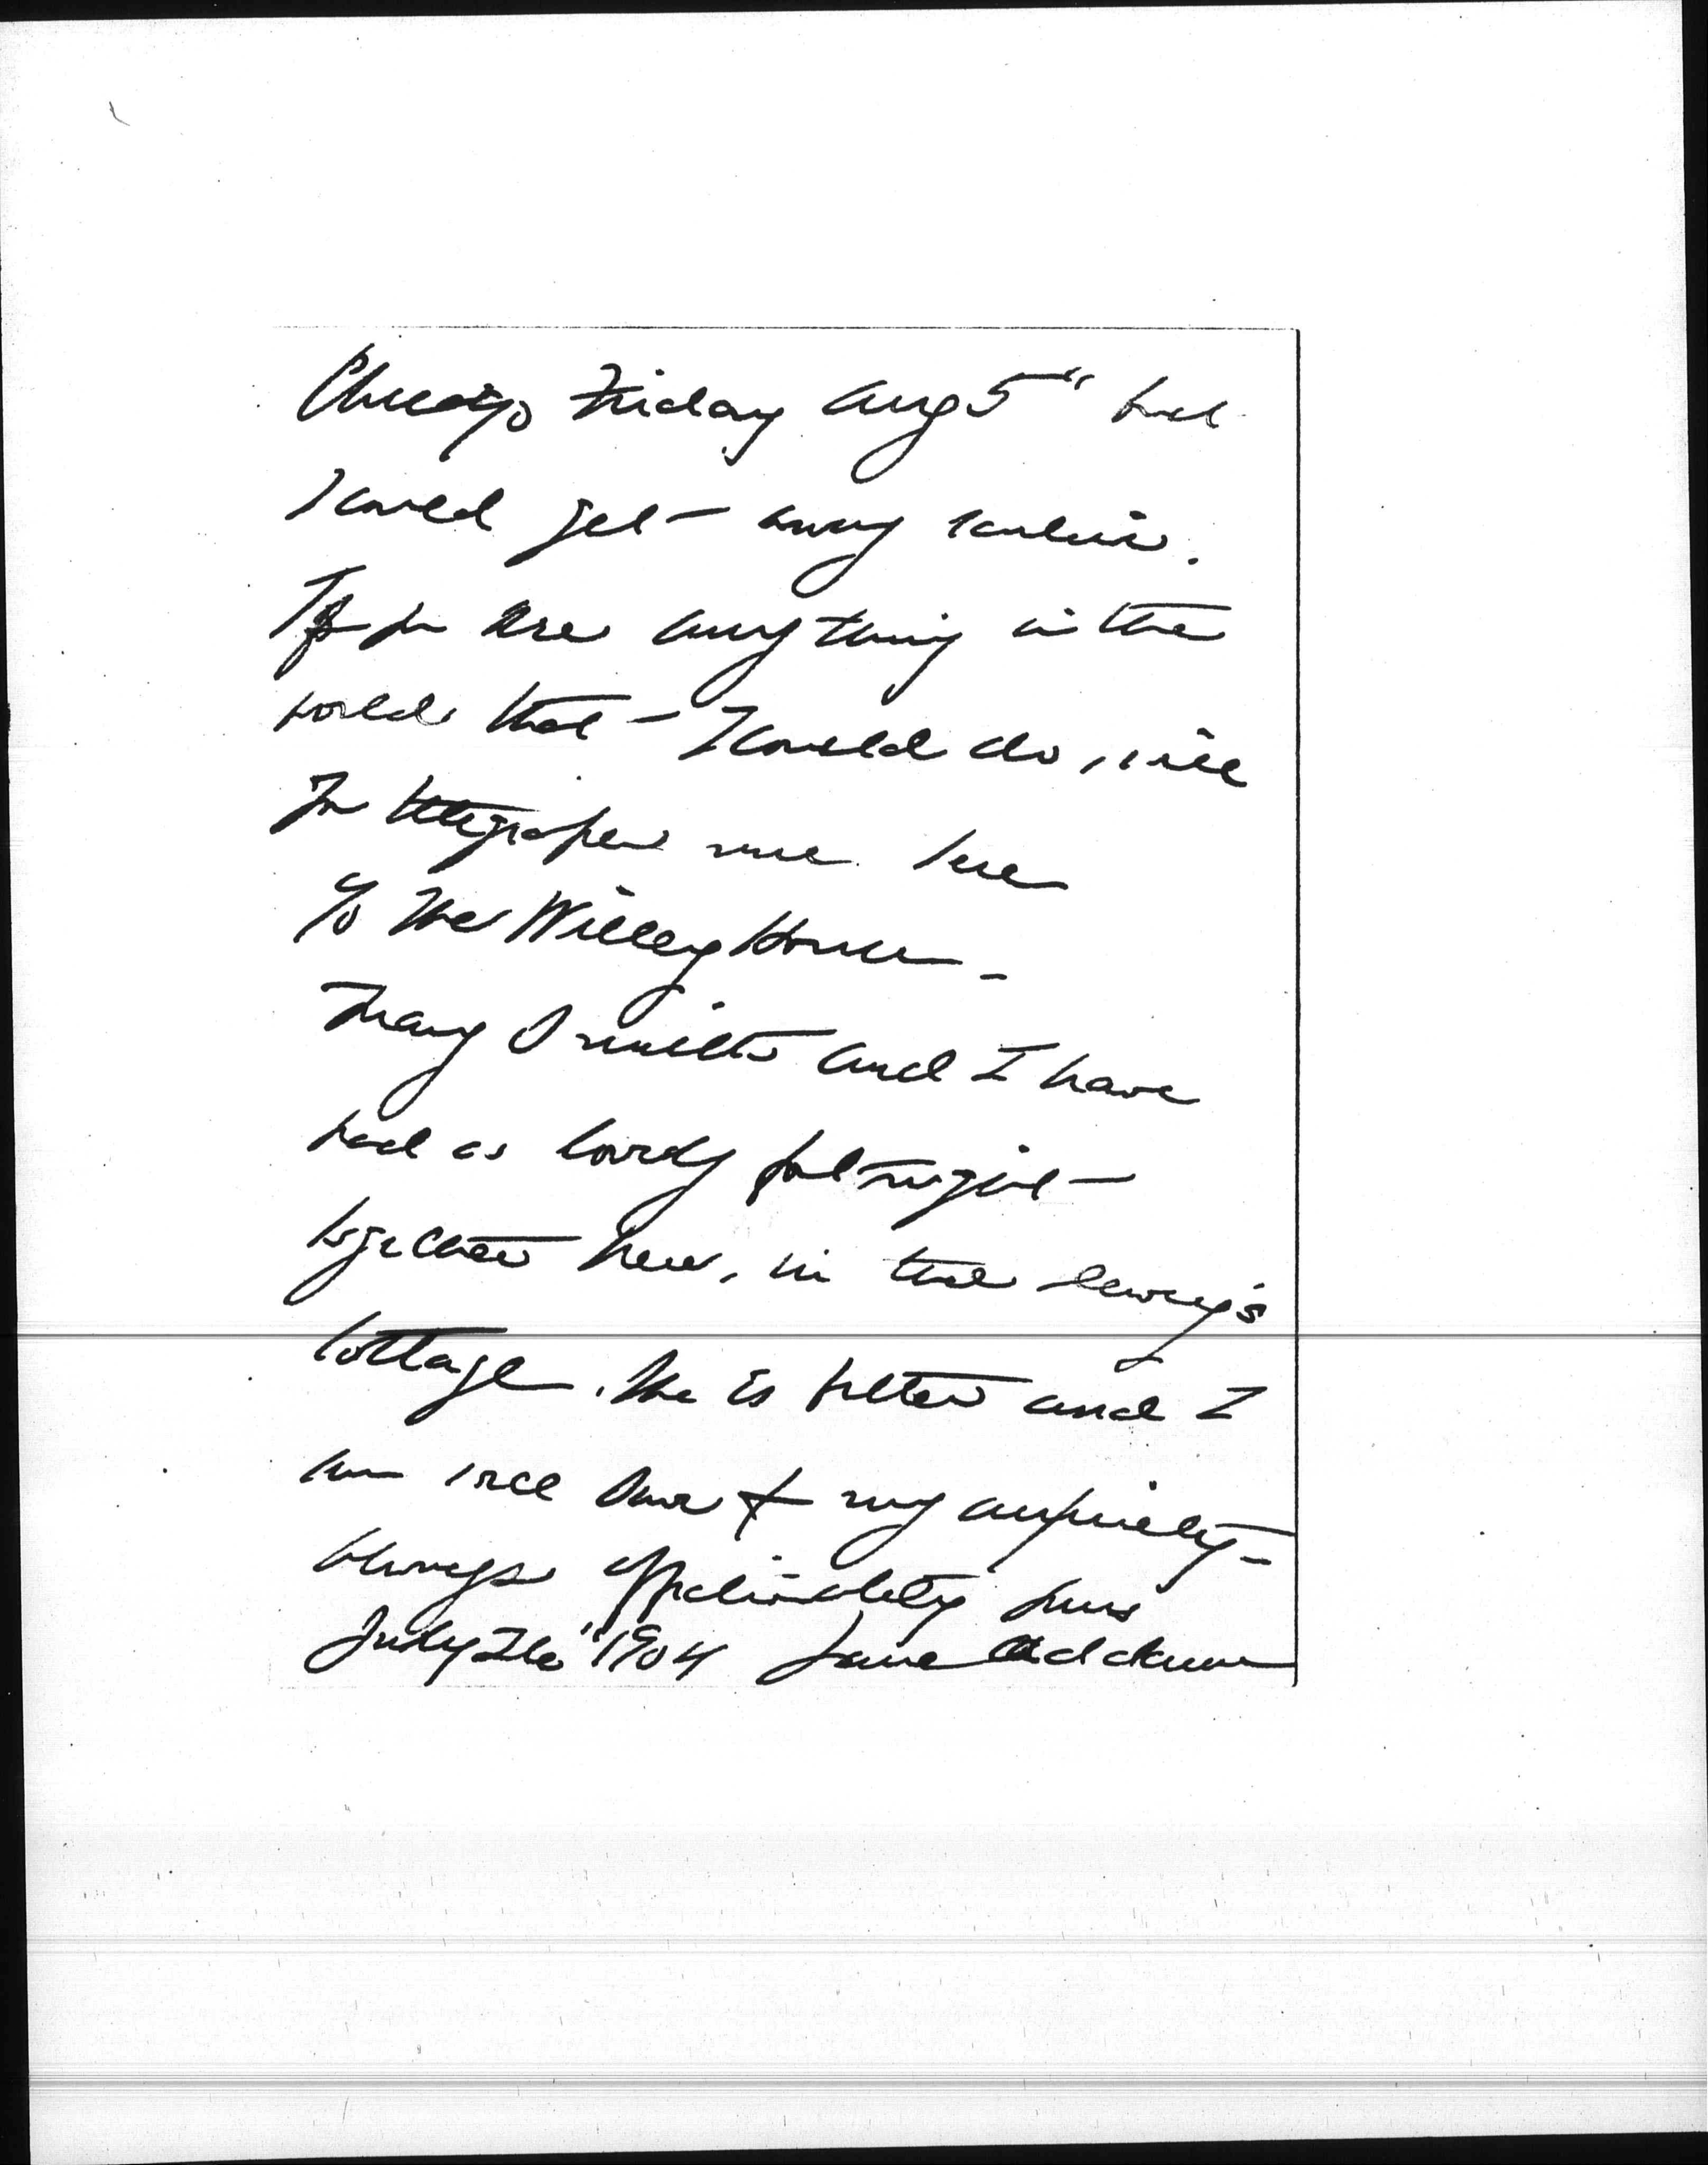 Chicago Friday Aug 5" but
I could get - away earlier.
If you see anything in the
world that - I could do, will
you telegraph me here
c/o The Willey House -
Mary Smith and I have
had a lovely fortnight -
together here, in the Lowrey's
cottage. She is better and I
am well save for my anxiety -
Always affectionately yours
July 26" 1904 Jane Addams